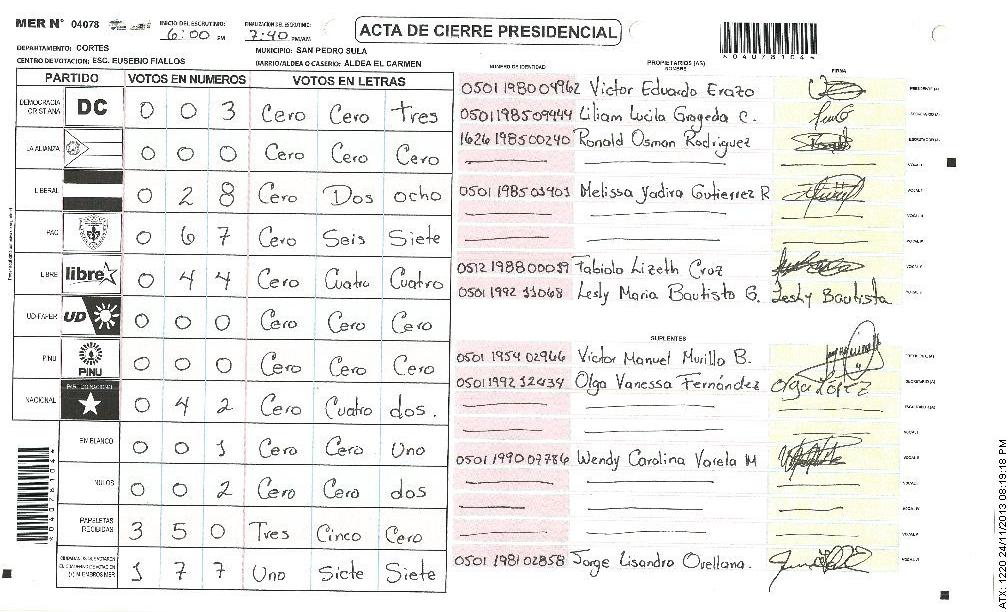 MER N° 04078
INICIO DEL ESCRUTINIO: 6:00 PM
FINALIZACION DEL ESCRUTINIO: 7:40 PM/AM
ACTA DE CIERRE PRESIDENCIAL
DEPARTAMENTO: CORTES
MUNICIPIO: SAN PEDRO SULA
CENTRO DE VOTACION: ESC. EUSEBIO FIALLOS
BARRIO/ALDEA O CASERIO: ALDEA EL CARMEN
PARTIDO VOTOS EN NUMEROS VOTOS EN LETRAS
DEMOCRACIA CRISTIANA DC 0 0 3 Cero Cero Tres
LA ALIANZA 0 0 0 Cero Cero Cero
LIBERAL 0 2 8 Cero Dos ocho
PAC 0 6 7 Cero Seis Siete
LIBRE libre 0 4 4 Cero Cuatro Cuatro
UD-FAPER UD 0 0 0 Cero Cero Cero
PINU PINU 0 0 0 Cero Cero Cero
NACIONAL PARTIDO NACIONAL 0 4 2 Cero Cuatro dos.
EN BLANCO 0 0 1 Cero Cero Uno
NULOS 0 0 2 Cero Cero dos
PAPELETAS RECIBIDAS 3 5 0 Tres Cinco Cero
1 7 7 Uno Siete Siete
NUMERO DE IDENTIDAD PROPIETARIOS (AS) NOMBRE FIRMA
0501 1980 04962 Victor Eduardo Erazo PRESIDENTE (A)
0501 1985 09444 Liliam Lucila Grageda C. SECRETARIO (A)
1626 1985 00240 Ronald Osman Rodriguez ESCRUTADOR (A)
VOCAL I
0501 1985 03403 Melissa Yadira Gutierrez R VOCAL II
VOCAL III
VOCAL IV
0512 1988 00039 Fabiola Lizeth Cruz VOCAL V
0501 1992 11068 Lesly Maria Bautista G. Lesly Bautista
SUPLENTES
0501 1954 02966 Victor Manuel Murillo B. PRESIDENTE (A)
0501 1992 12434 Olga Vanessa Fernández Olga López SECRETARIO (A)
ESCRUTADOR (A)
VOCAL I
0501 1990 07786 Wendy Carolina Varela M VOCAL II
VOCAL III
VOCAL IV
VOCAL V
0501 1981 02858 Jorge Lisandro Orellana.
ATX: 1220 24/11/2013 08:19:18 PM